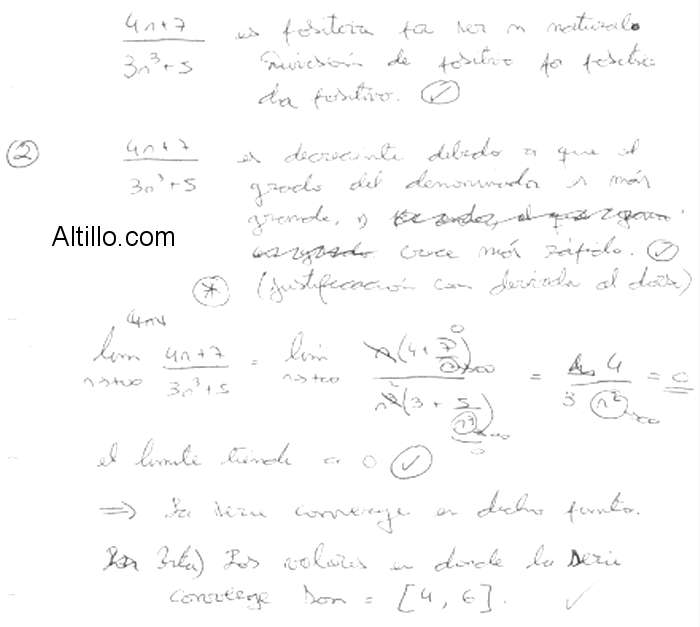 4n+7 / 3n³+5 es positiva por ser n natural.
División de positivo por positivo
da positivo. ✓
② 4n+7 / 3n³+5 es decreciente debido a que el
grado del denominador es más
grande, y crece más rápido. ✓
Altillo.com
(*) (justificación con derivada al dorso)
lim n→+∞ 4n+7 / 3n³+5 = lim n→+∞ n(4 + 7/n) / n³(3 + 5/n³) = 4 / 3 n² = 0
el límite tiende a 0 ✓
⇒ La serie converge en dicho punto.
Rta) Los valores en donde la serie
converge son = [4, 6]. ✓